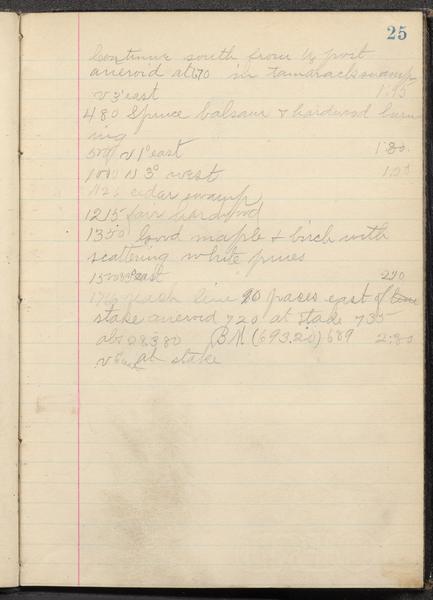 25
Continue south from 1/4 post
aneroid at 670 in tamarack swamp
v 3° east 1:15
480 Spruce balsam & hardwood burn
ing
500 v 1° east 1:30
1000 v 3° west
cedar swamp
1215 fair hardwood
1350 Good maple & birch with
scattering white pines
1500 3° east
reach line 20 paces east of
stake aneroid 720 at stake 735
abs 28380 BM (693.20) 689 2:30
v at stake